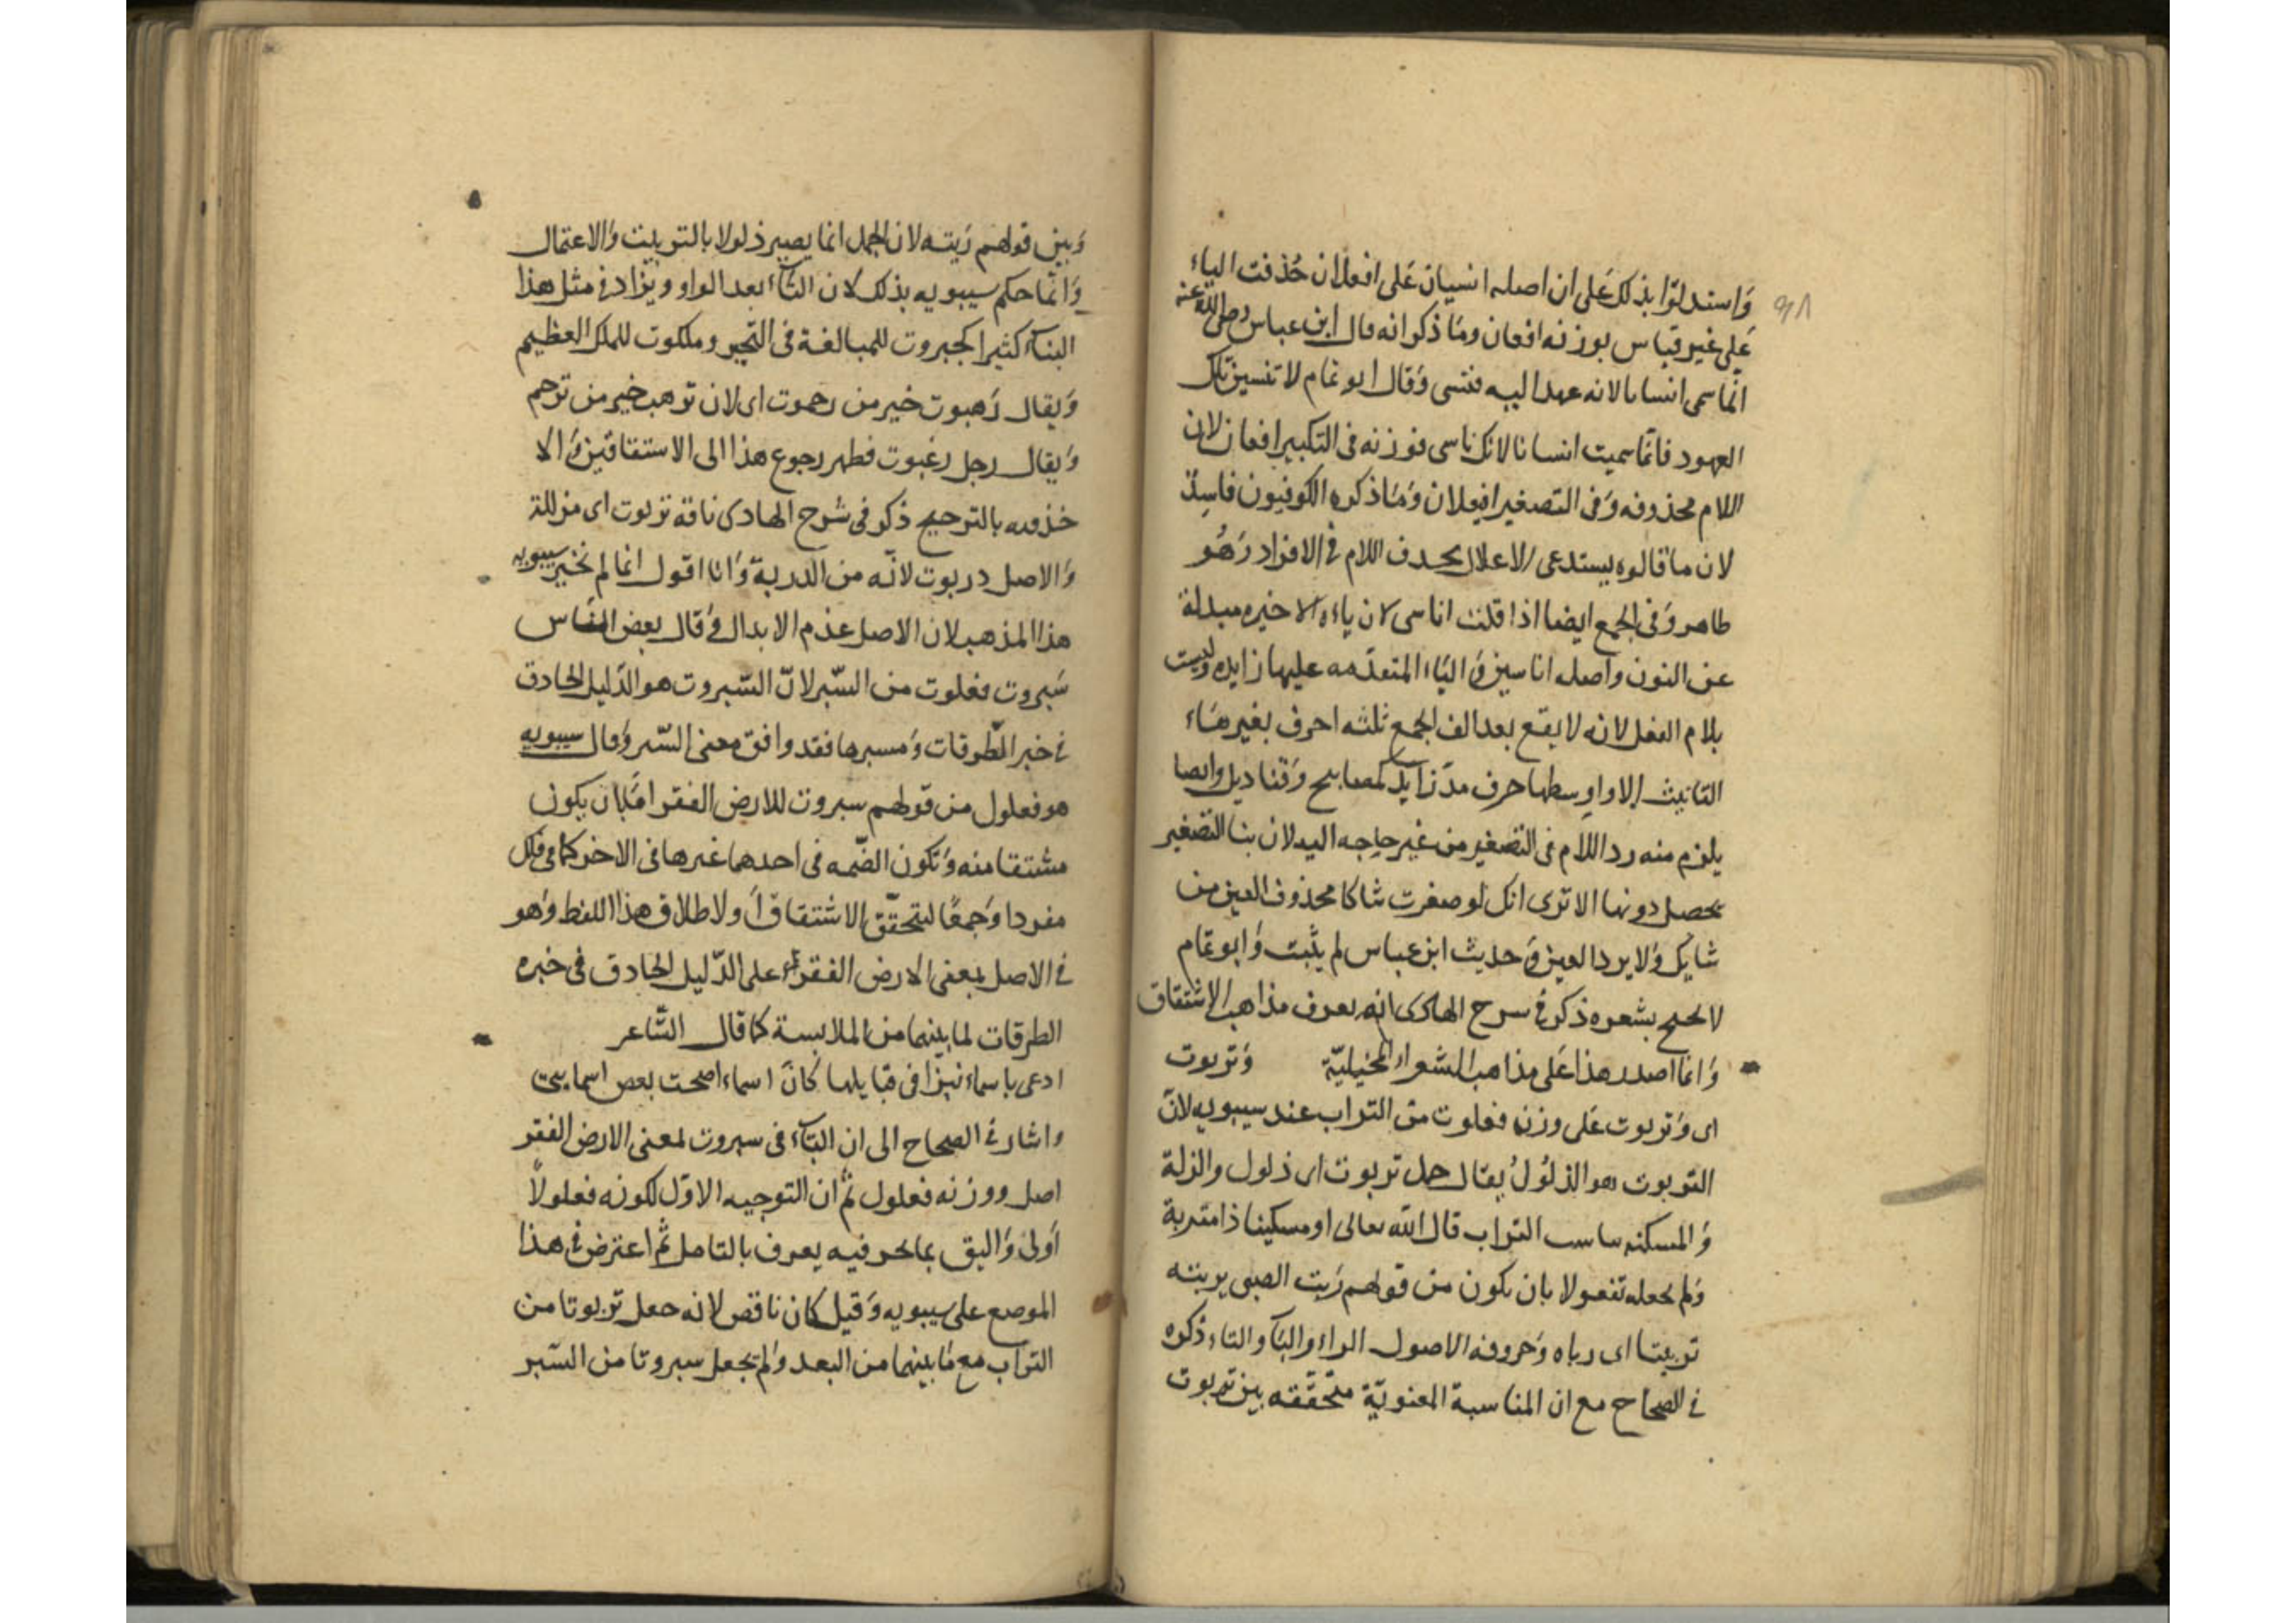 واستدلوا بذلك على ان اصله انسيان على افعلان حُذفت الياء
على غير قياس بوزنه افعان وما ذكروا انه قال ابن عباس رضي الله عنه
انما سمى انسانا لانه عهد اليه فنسى وقال ابو تمام لا تنسين تلك
العهود فانما سميت انسانا لانك ناسى فوزنه فى التكبير افعان لان
اللام محذوفه وفى التصغير افيعلان وما ذكره الكوفيون فاسدٌ
لان ما قالوه يستدعى الاعلال بحدف اللام فى الافراد وهُو
ظاهر وفى الجمع ايضا اذا قلت اناسى لان ياءه الاخيره مبدلة
عن النون واصله اناسين والياء المتقدمه عليها زايده وليست
بلام الفعل لانه لا يقع بعد الف الجمع ثلثه احرف بغير هاء
التانيث الا واوسطها حرف مد زايد كمصابيح وقناديل وايضا
يلزم منه رد اللام فى التصغير من غير حاجه اليه لان بنا التصغير
يحصل دونها الا ترى انك لو صغرت شاكا محذوف العين من
شايك ولا يرد العين وحديث ابن عباس لم يثبت وابو تمام
لا يحتج بشعره ذكر فى شرح الهادى انه يعرف مذاهب الاشتقاق
وانما اصدر هذا على مذاهب الشعراء التخيليّة وتربوت
اى وتربوت على وزن فعلوت من التراب عند سيبويه لانّ
التربوت هو الذلُولُ يقال جمل تربوت اى ذلول والذلة
والمسكنه يناسب التراب قال الله تعالى او مسكينا ذا متربة
ولم يجعله تفعولا بان يكون من قولهم رَبت الصبى يربته
تربيتا اى رباه وحروفه الاصول الراء والباء والتاء ذكره
فى الصحاح مع ان المناسبة المعنويّة متحقّقه بين تربوت
وبين قولهم ربته لان الجمل انما يصير ذلولا بالتربيت والاعتمال
وانما حكم سيبويه بذلك لان التاء بعد الواو ويزاد فى مثل هذا
البناء كثيرا كجبروت للمبالغة فى التجبر وملكوت للملك العظيم
ويقال رَهبوت خير من رحموت اى لان ترهب خير من ترحم
ويقال رجل رغبوت فظهر رجوع هذا الى الاشتقاقين والا
خذ فيه بالترجيح ذكر فى شرح الهادى ناقة تربوت اى مذللة
والاصل دربوت لانّه من الدربة وانا اقول انما لم يختر سيبويه
هذا المذهب لان الاصل عدم الابدال وقال بعض الناس
سَبروت فعلوت من السّبر لانّ السّبروت هو الدّليل الحاذق
فى خبر الطّرقات ومسبرها فقد وافق معنى السّبر وقال سيبويه
هو فعلول من قولهم سبروت للارض القفر امّا بان يكون
مشتقا منه وتكون الضّمه فى احدهما غيرها فى الاخر كما فى فلك
مفردا وجمعًا ليتحقّق الاشتقاق او لاطلاق هذا اللفظ وهو
فى الاصل بمعنى الارض القفر على الدّليل الحاذق فى خبره
الطرقات لما بينهما من الملابسة كما قال الشّاعر
ادعى باسماء نبزا فى قبايلها كانّ اسماء اضحت بعض اسمايى
واشار فى الصحاح الى ان التاء فى سبروت بمعنى الارض القفر
اصل ووزنه فعلول ثم ان التوجيه الاوّل لكونه فعلولاً
اولى واليق بما نحن فيه يعرف بالتامل ثم اعترض فى هذا
الموضع على سيبويه وقيل كان ناقض لانه جعل تربوتا من
التراب مع ما بينهما من البعد ولم يجعل سبروتا من السّبر